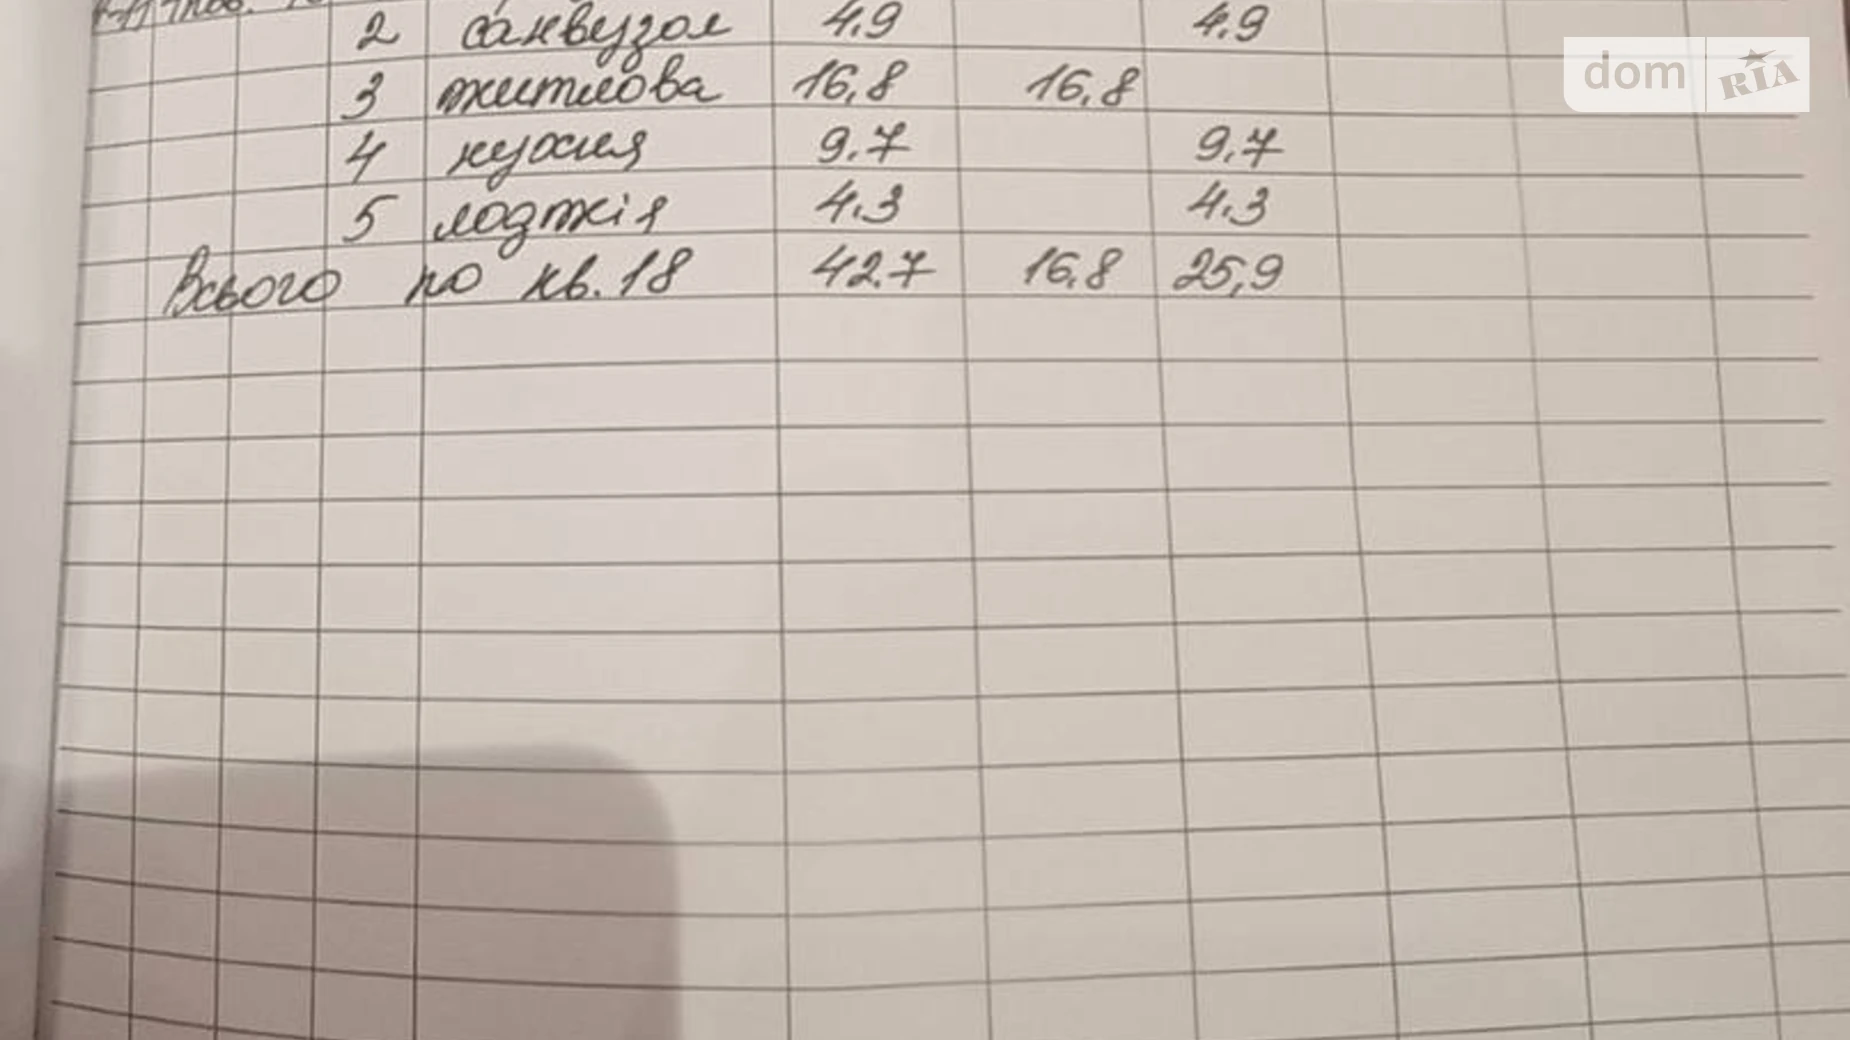 2 санвузол 4.9 4.9
3 житлова 16,8 16,8
4 кухня 9.7 9.7
5 лоджія 4.3 4.3
Всього по кв. 18 42.7 16.8 25,9
dom RIA